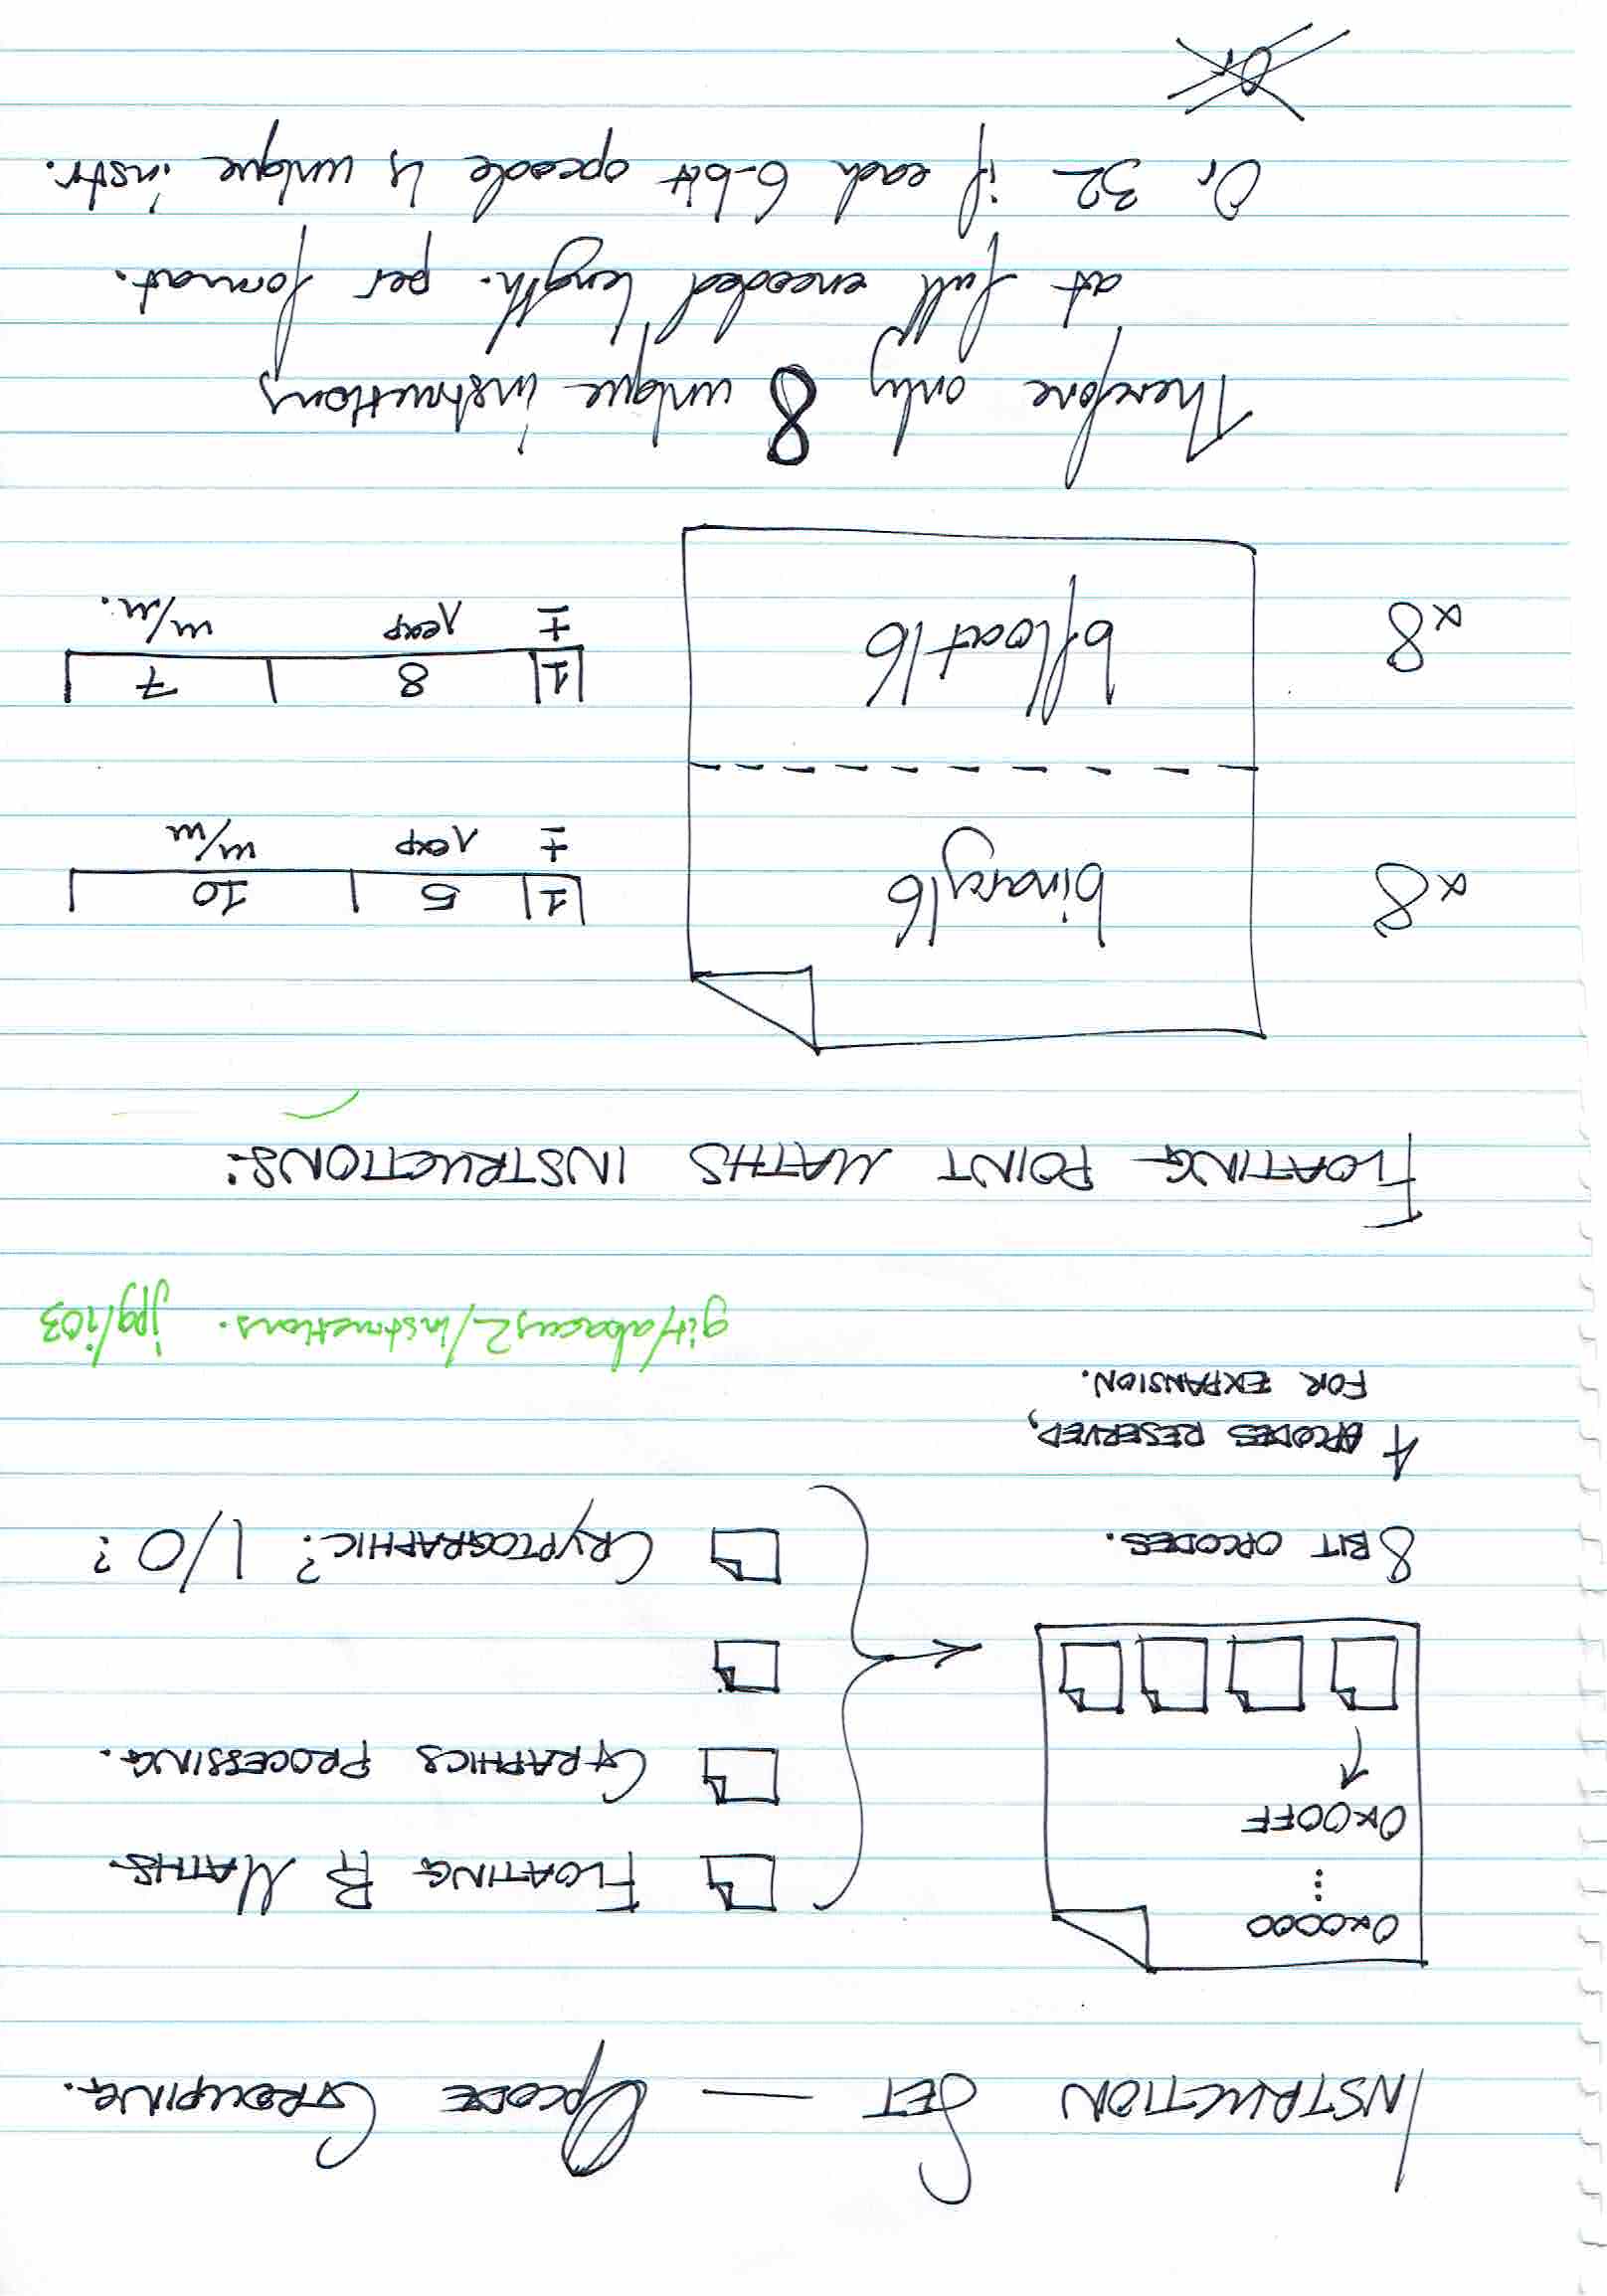 INSTRUCTION SET — OPCODE GROUPING.
0x0000
⋮
0x00FF
8 BIT OPCODES.
4 OPCODES RESERVED,
FOR EXPANSION.
FLOATING PT MATHS.
GRAPHICS PROCESSING.
CRYPTOGRAPHIC? I/O?
git/abacus2/instructions. jpg/i03
FLOATING POINT MATHS INSTRUCTIONS:
×8 binary16 1 5 10
± ^exp m/m
×8 bfloat16 1 8 7
± ^exp m/m.
Therefore only 8 unique instructions
at full encoded length. per format.
Or 32 if each 6-bit opcode is unique instr.
Or